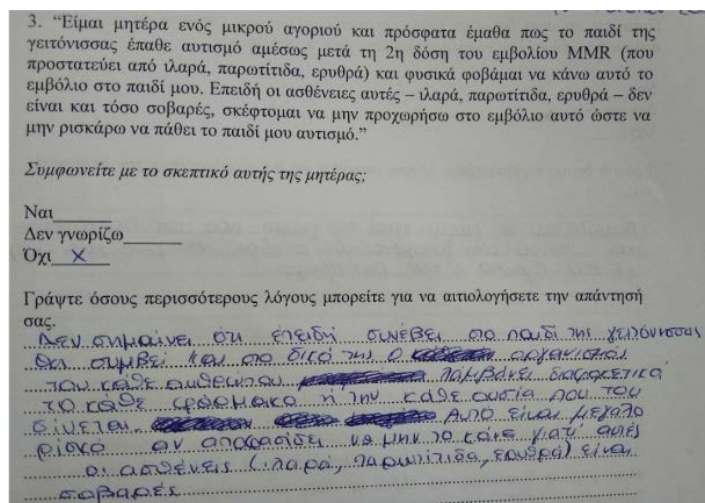 3. “Είμαι μητέρα ενός μικρού αγοριού και πρόσφατα έμαθα πως το παιδί της
γειτόνισσας έπαθε αυτισμό αμέσως μετά τη 2η δόση του εμβολίου MMR (που
προστατεύει από ιλαρά, παρωτίτιδα, ερυθρά) και φυσικά φοβάμαι να κάνω αυτό το
εμβόλιο στο παιδί μου. Επειδή οι ασθένειες αυτές – ιλαρά, παρωτίτιδα, ερυθρά – δεν
είναι και τόσο σοβαρές, σκέφτομαι να μην προχωρήσω στο εμβόλιο αυτό ώστε να
μην ρισκάρω να πάθει το παιδί μου αυτισμό.”
Συμφωνείτε με το σκεπτικό αυτής της μητέρας;
Ναι
Δεν γνωρίζω
Όχι X
Γράψτε όσους περισσότερους λόγους μπορείτε για να αιτιολογήσετε την απάντησή
σας.
Δεν σημαίνει ότι επειδή συνέβει στο παιδί της γειτόνισσας
θα συμβεί και στο δικό της ο οργανισμός
του κάθε ανθρώπου λαμβάνει διαφορετικά
το κάθε φάρμακο ή την κάθε ουσία που του
δίνεται. Αυτό είναι μεγάλο
ρίσκο αν αποφασίσει να μην το κάνει γιατί αυτές
οι ασθένειες (ιλαρά, παρωτίτιδα, ερυθρά) είναι
σοβαρές